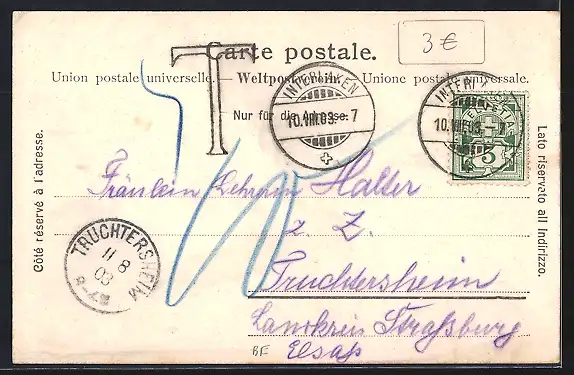 Carte postale.
3 €
Union postale universelle. — Weltpostverein. — Unione postale universale.
T
Nur für die Adresse.
INTERLAKEN
10.VIII.03.-7
INTERLAKEN
10.VIII.03.-7
HELVETIA
5
Côté réservé à l'adresse.
Lato riservato all indirizzo.
Fräulein Lehrerin Halter
z. Z.
Truchtersheim
Landkreis Straßburg
Elsaß
TRUCHTERSHEIM
11 8
03
10
BE